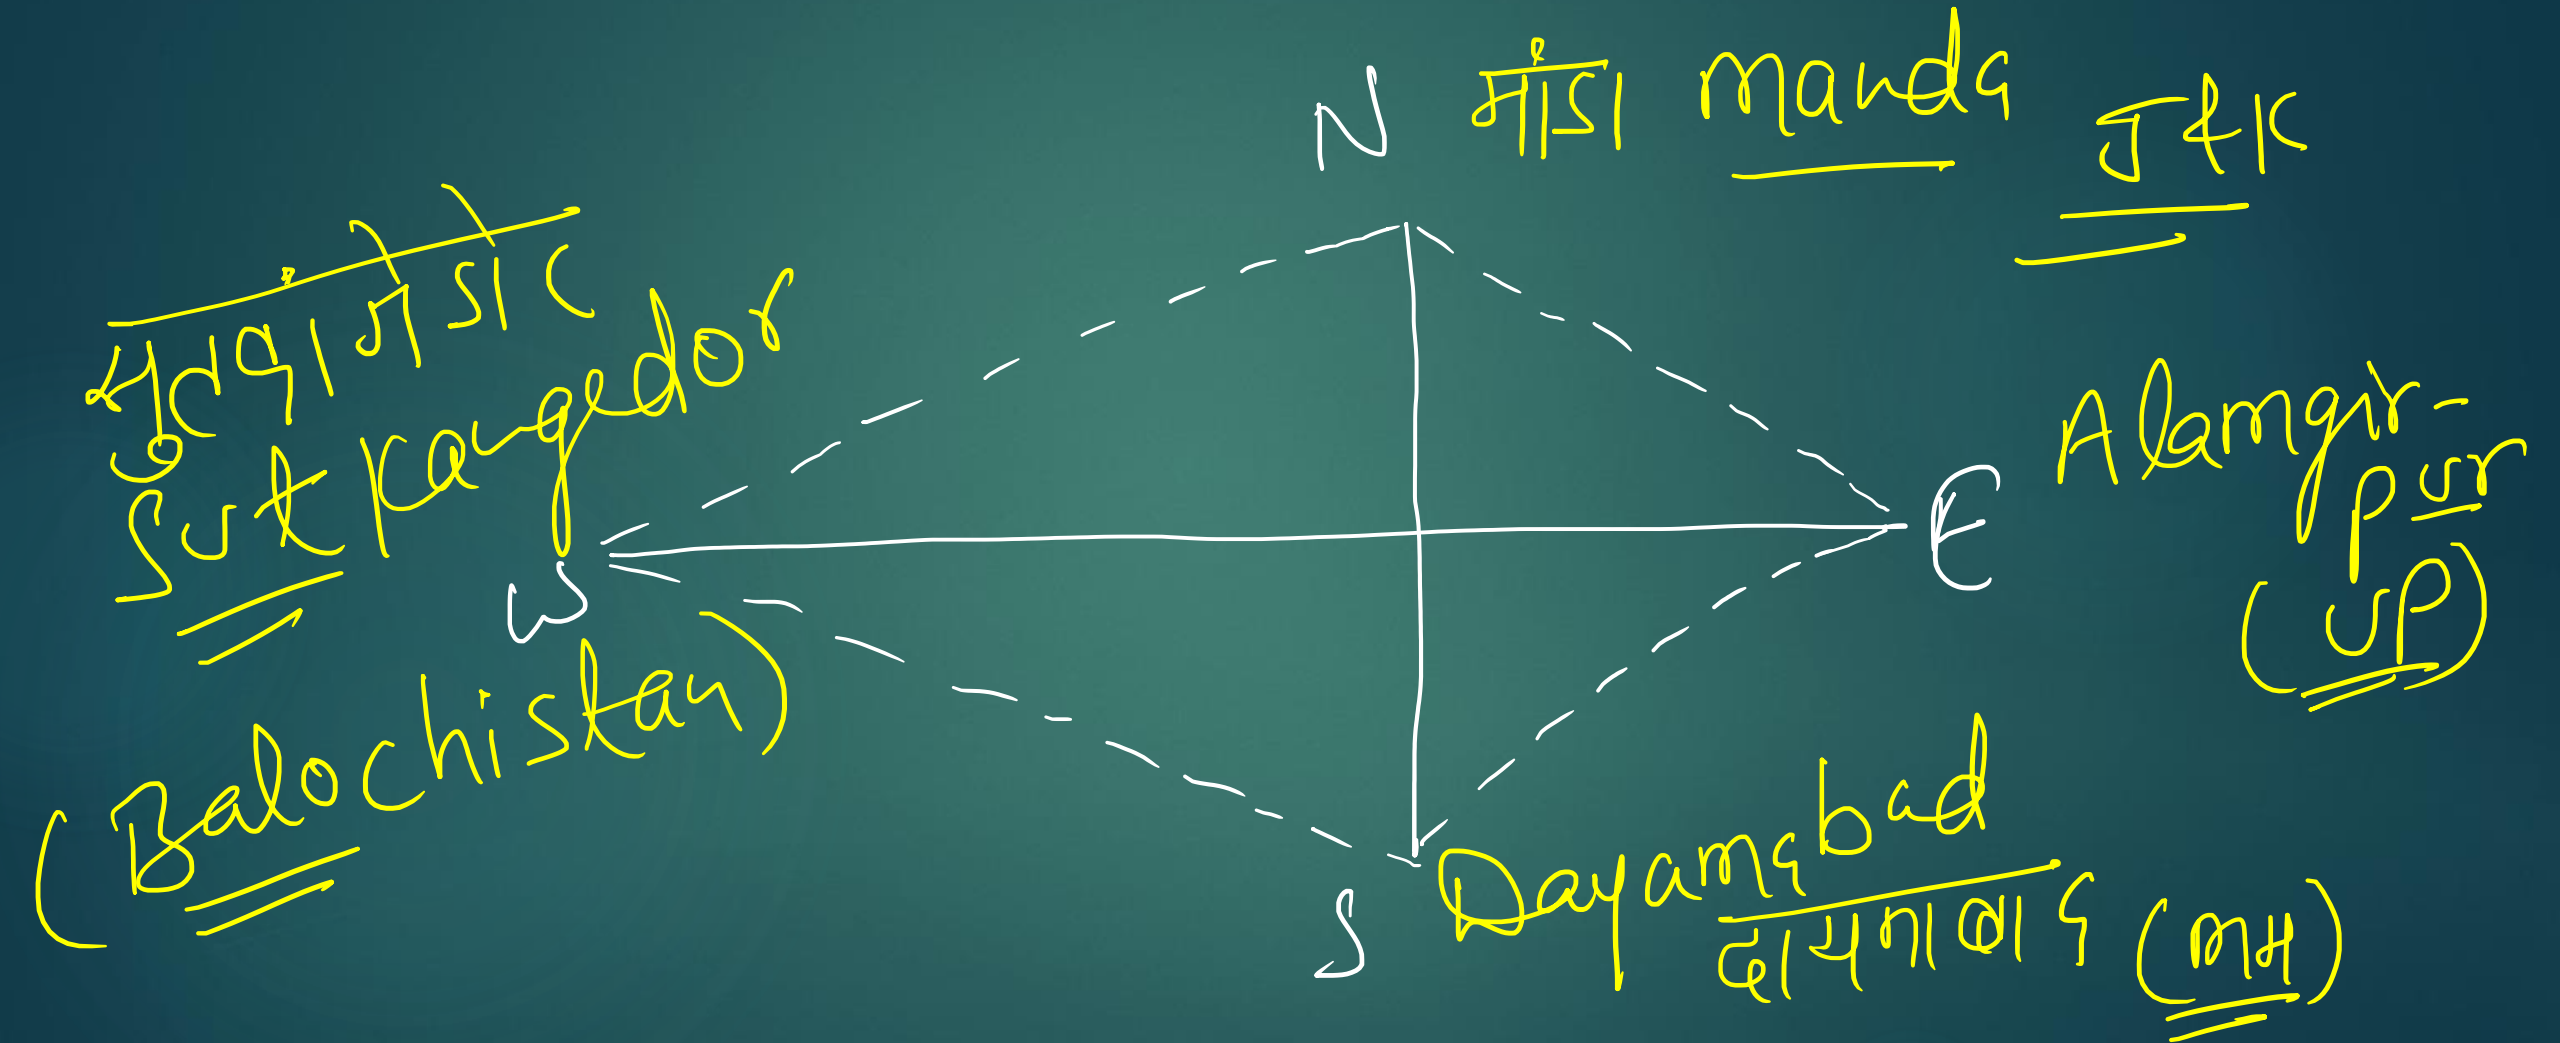 N मांडा Manda J&K
सुत्कांगेडोर
Sutkangedor
W
(Balochistan)
E
Alamgir-
pur
(UP)
S Dayamabad
दायमाबाद (MH)